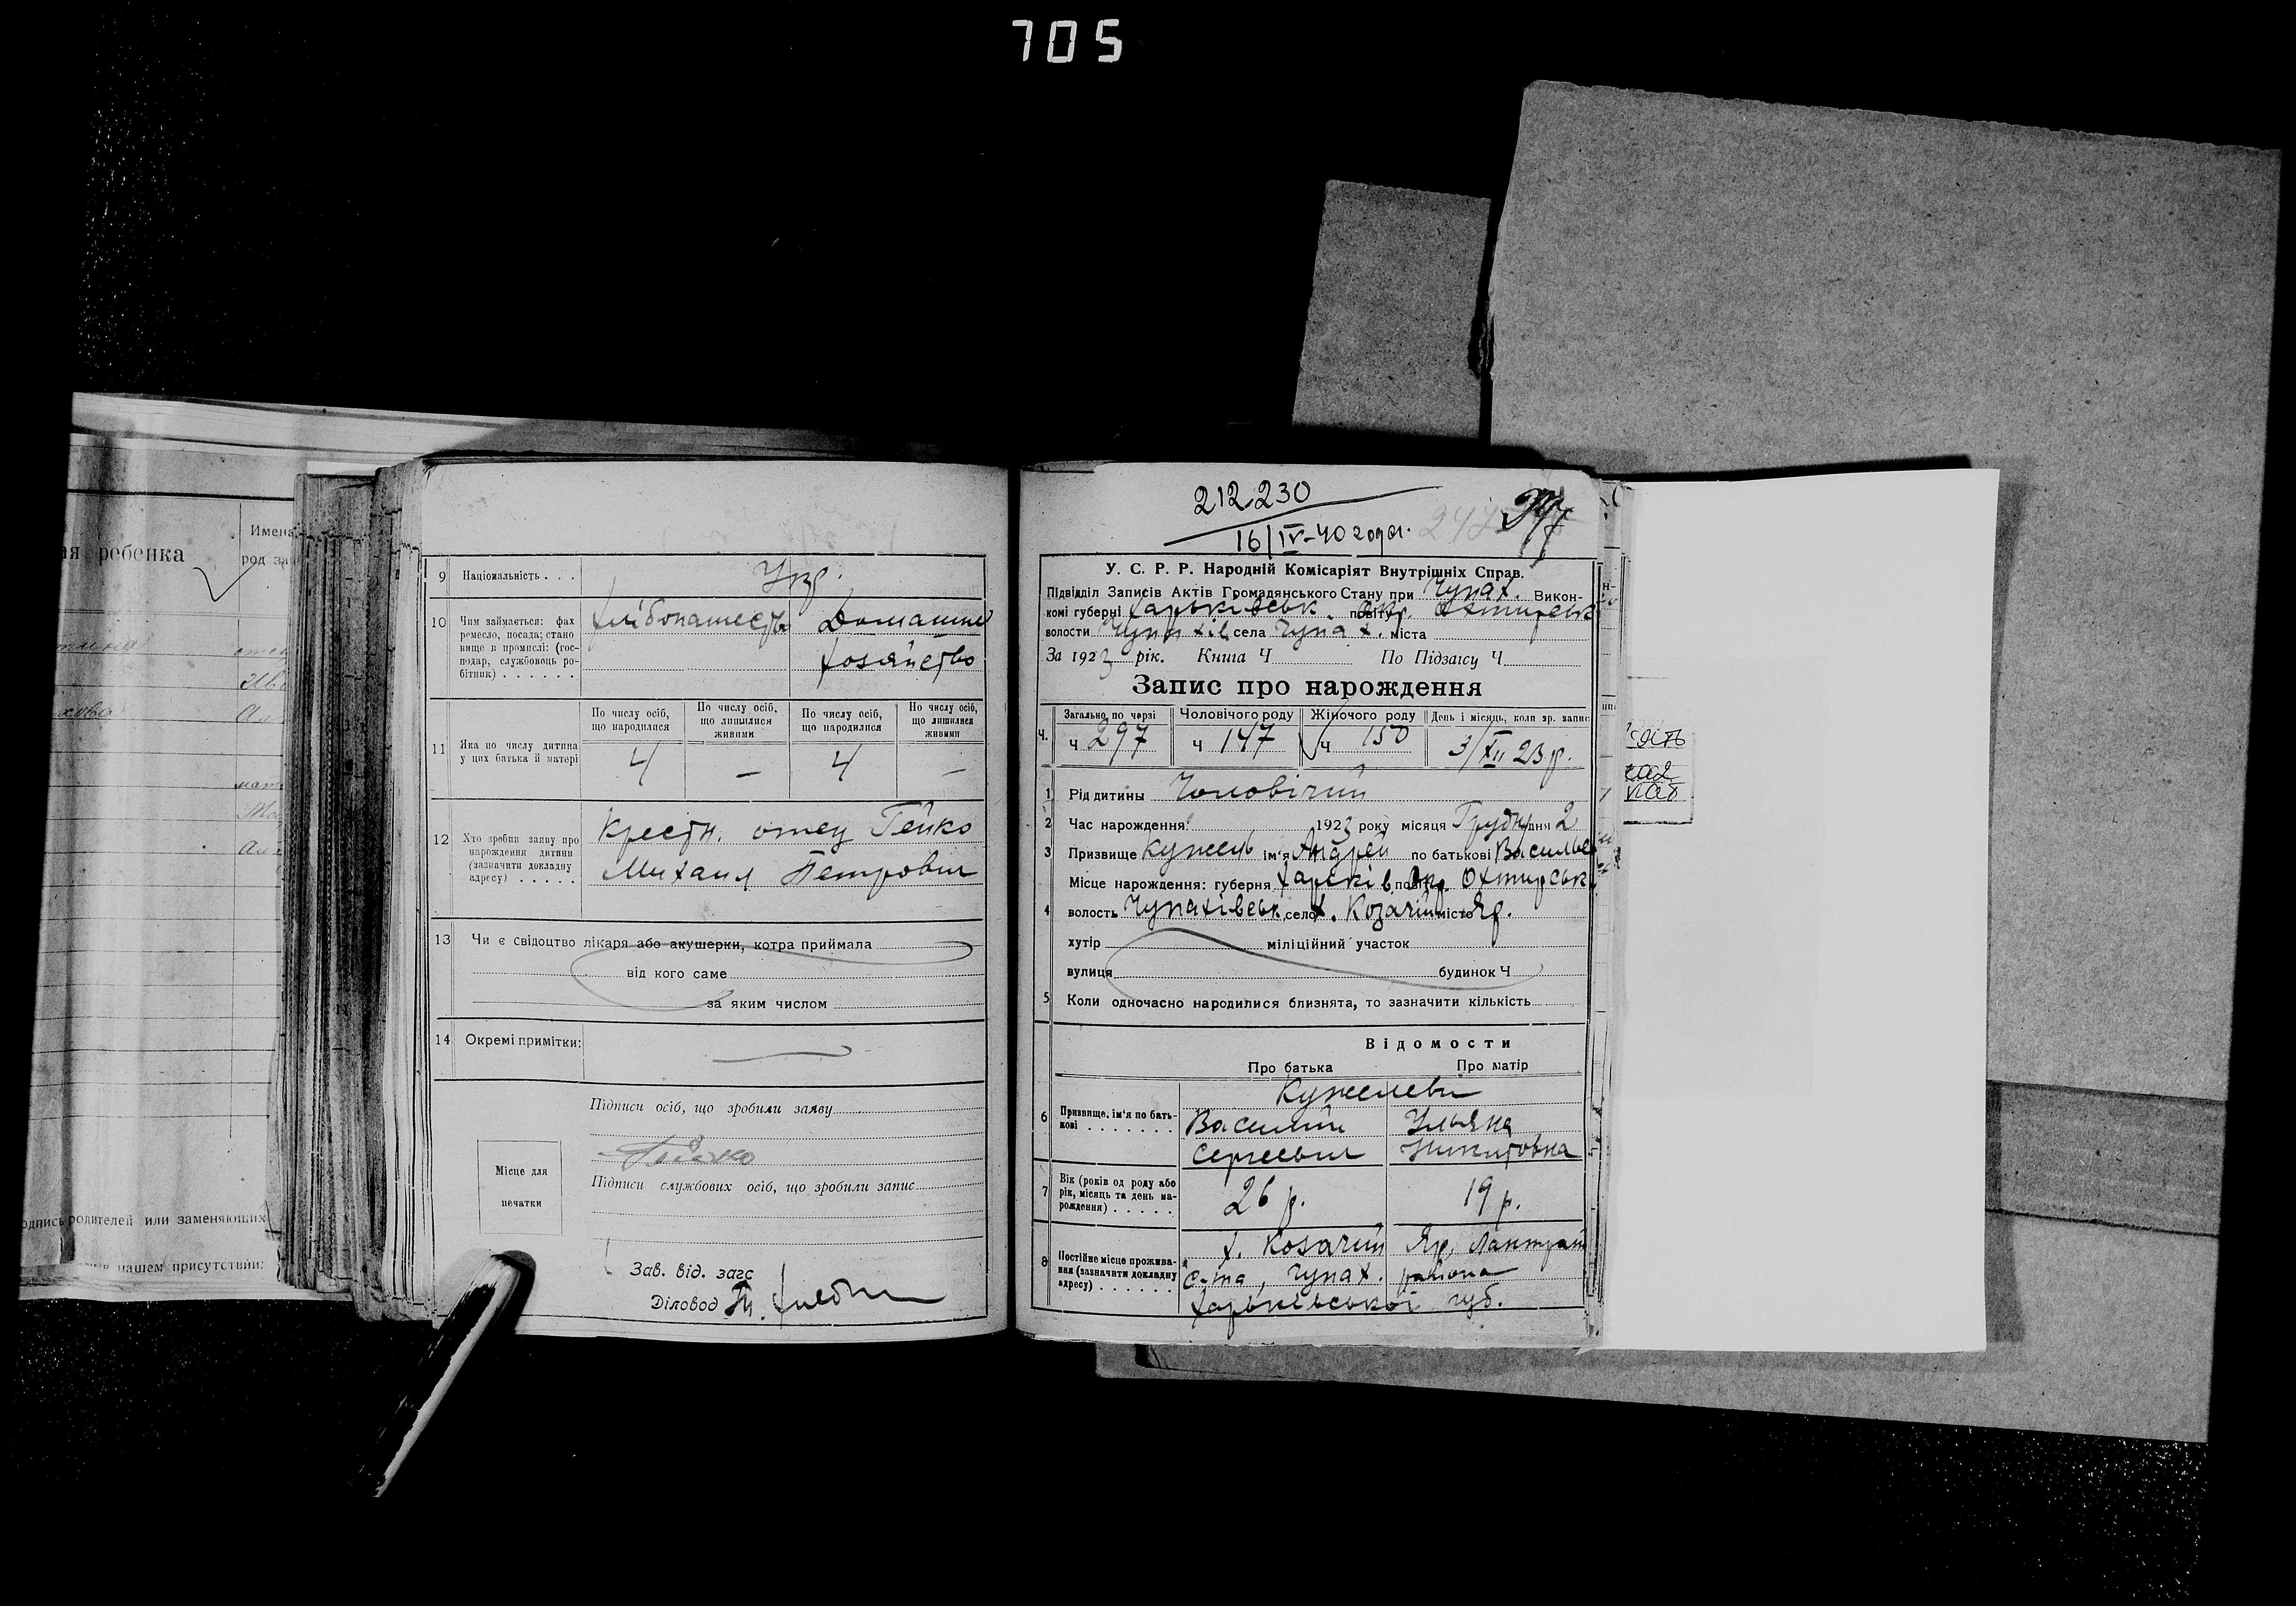 705
ая ребенка
Имена
род за
одпись родителей или заменяющих
нашем присутствии:
9 Національність . . . Укр.
10 Чим займається: фах ремесло, посада; стано вище в промислі: (гос- подар, службовець ро- бітник) . . . . . .
Домашнє
хозяйство
11 Яка по числу дитина у цих батька й матері
По числу осіб, що народилися
По числу осіб, що лишилися живими
По числу осіб, що народилися
По числу осіб, що лишилися живими
4 — 4 —
12 Хто зробив заяву про народження дитини (зазначити докладну адресу) . . . . .
Крестн. отец Гейко
Михаил Петрович
13 Чи є свідоцтво лікаря або акушерки, котра приймала
від кого саме
за яким числом
14 Окремі примітки:
Підписи осіб, що зробили заяву
Місце для печатки
Підписи службових осіб, що зробили запис
Зав. від. загс
Діловод
212230
16/IV-40 года.
У. С. Р. Р. Народній Комісаріят Внутрішніх Справ.
Підвідділ Записів Актів Громадянського Стану при Чупах. Викон-
комі губерні Харьківськ. повіту окр. Охтирськ
волости Чупахів. села Чупах. міста
За 1923 рік. Книга Ч По Підзагсу Ч
Запис про нарождення
Загально по черзі Чоловічого роду Жіночого роду День і місяць, коли зр. запис
Ч. ч 297 ч 147 ч 150 3/XII 23 р.
1 Рід дитини Чоловічий
2 Час нарождення: 1923 року місяця Грудня дня 2
3 Призвище Кужель ім'я Андрей по батькові Васильев
Місце нарождення: губерня Харьків. пов. Окр. Охтирськ
4 волость Чупахівськ. село х. Козачий місто Яр.
хутір міліційний участок
вулиця будинок Ч
5 Коли одночасно народилися близнята, то зазначити кількість
Відомости
Про батька Про матір
Кужелеви
6 Призвище, ім'я по бать- кові . . . . . . .
Василий Ульяна
Сергеевич Никитовна
7 Вік (років од роду або рік, місяць та день на- рождення) . . . . .
26 р. 19 р.
8 Постійне місце прожива- ння (зазначити докладну адресу) . . . . . .
х. Козачий Яр,
с-та, Чупах. району
Харьківської губ.